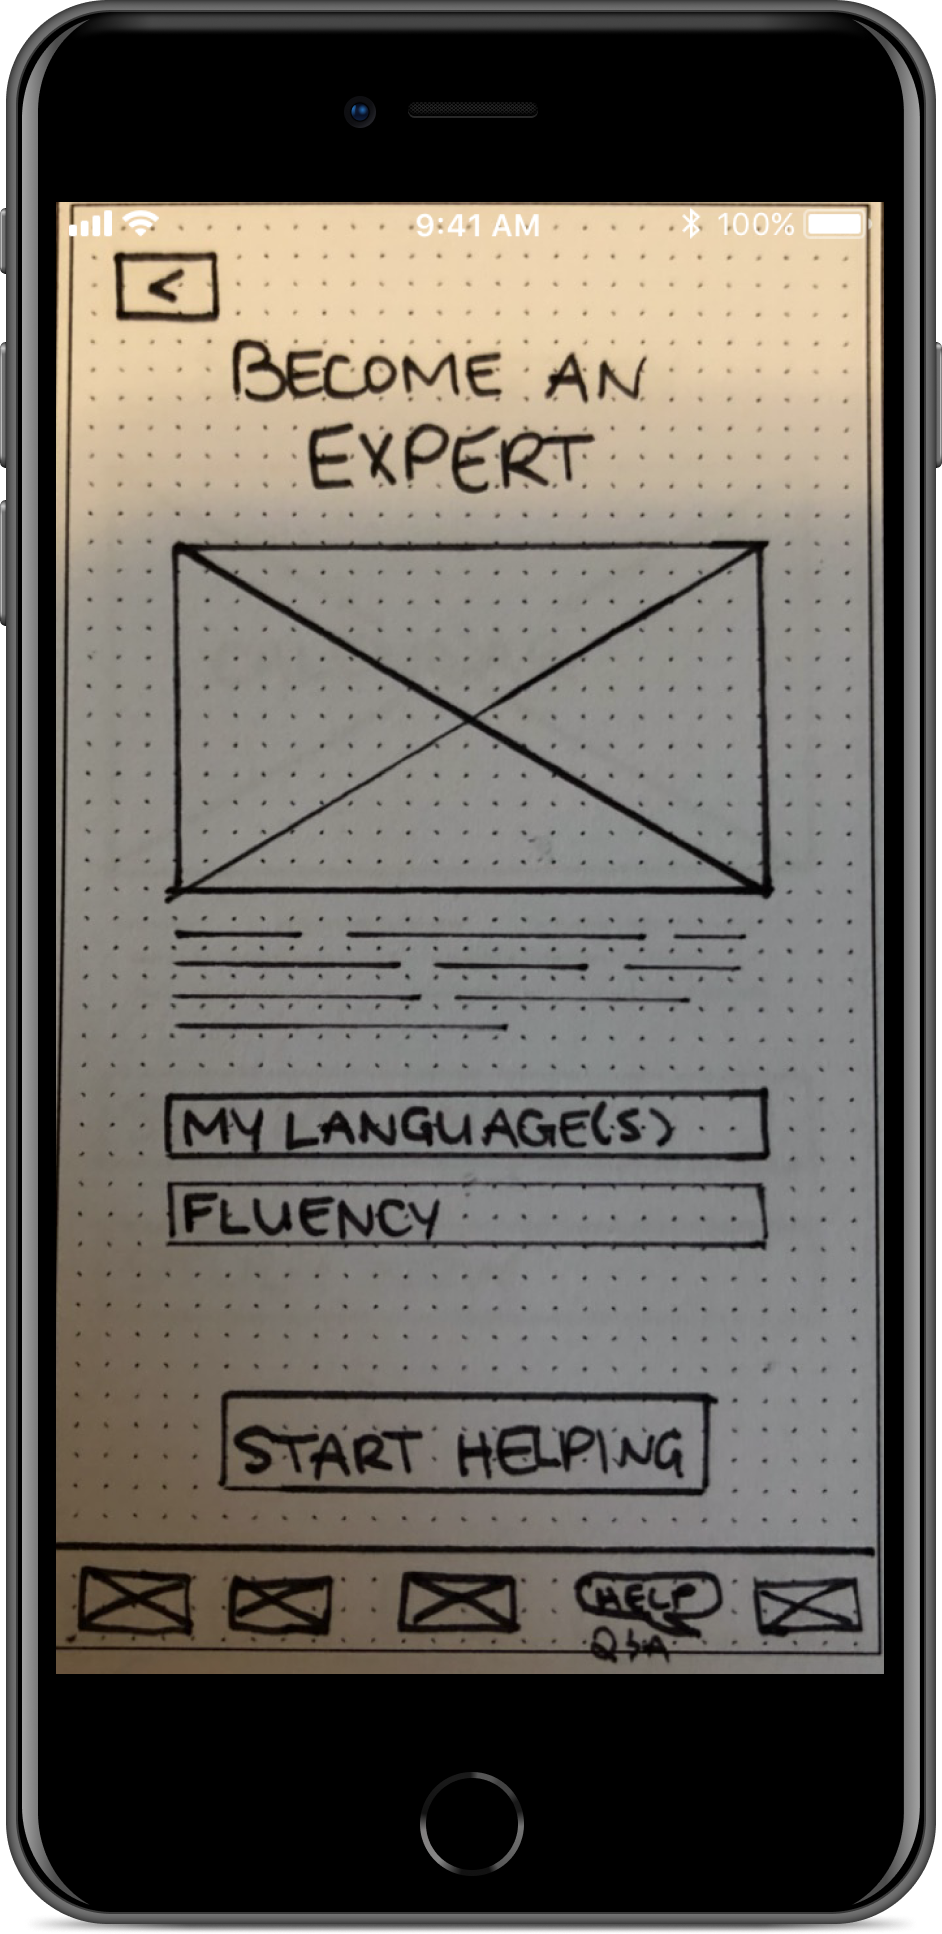 9:41 AM 100%
<
BECOME AN
EXPERT
MY LANGUAGE(S)
FLUENCY
START HELPING
HELP
Q&A